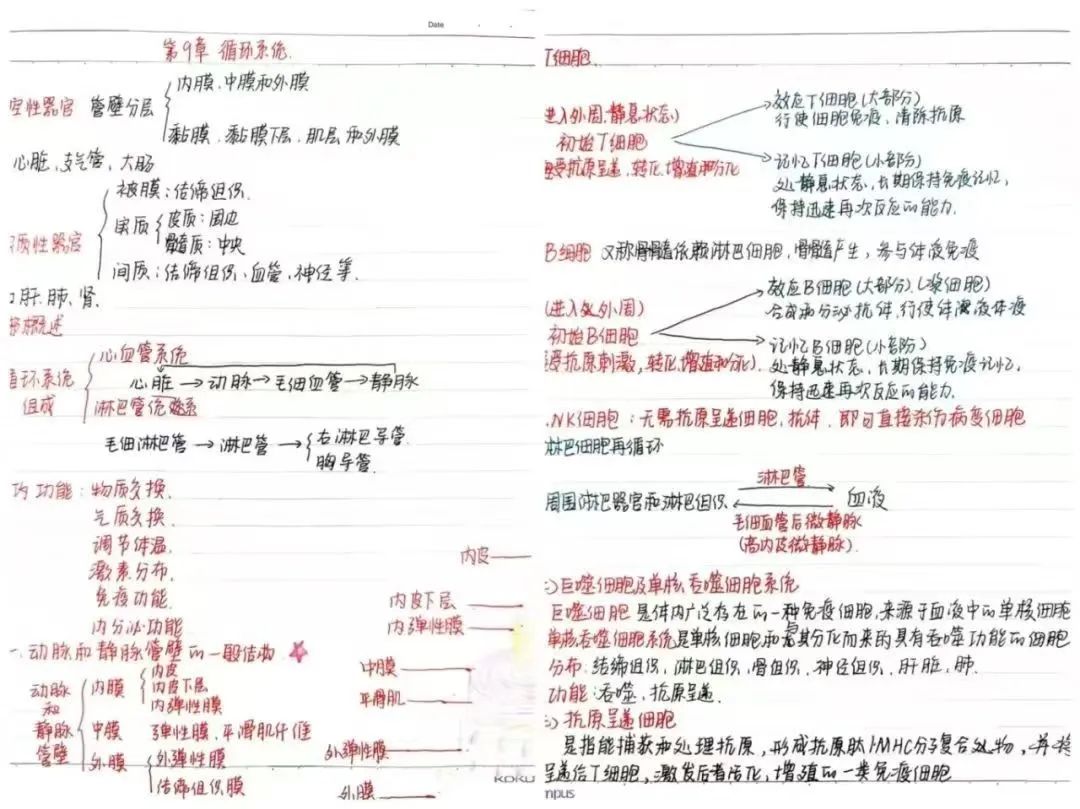 Date
第9章 循环系统.
内膜.中膜和外膜
空性器官 管壁分层
黏膜.黏膜下层.肌层和外膜
心脏,支气管,大肠
被膜:结缔组织.
实质 皮质:周边
髓质:中央
质性器官
间质:结缔组织、血管,神经等.
肝.肺.肾.
概述
心血管系统
循环系统
组成
心脏→动脉→毛细血管→静脉
淋巴管系
毛细淋巴管→淋巴管→ 右淋巴导管.
胸导管.
功能:物质交换.
气质交换.
调节体温.
激素分布.
免疫功能.
内分泌功能
内皮
内皮下层
内弹性膜
一.动脉和静脉管壁的一般结构
动脉
和
静脉
管壁
内膜 内皮
内皮下层
内弹性膜
中膜 弹性膜.平滑肌纤维
外膜 外弹性膜
结缔组织膜
中膜
平滑肌
外弹性膜
外膜
KOKU
T细胞.
进入外周.静息状态)
初始T细胞
受抗原呈递.转化.增殖和分化
效应T细胞(大部分)
行使细胞免疫,清除抗原
记忆T细胞(小部分)
处静息状态,长期保持免疫记忆,
保持迅速再次反应的能力.
B细胞 又称骨髓依赖淋巴细胞,骨髓产生,参与体液免疫
(进入外周)
初始B细胞
受抗原刺激,转化.增殖和分化).
效应B细胞(大部分).(浆细胞)
合成和分泌抗体.行使体液体疫
记忆B细胞(小部分)
处静息状态,长期保持免疫记忆,
保持迅速再次反应的能力.
.NK细胞:无需抗原呈递细胞.抗体.即可直接杀伤病变细胞
淋巴细胞再循环
淋巴管
周围淋巴器官和淋巴组织 血液
毛细血管后微静脉
(高内皮微静脉).
巨噬细胞及单核吞噬细胞系统
巨噬细胞 是体内广泛存在的一种免疫细胞.来源于血液中的单核细胞
单核吞噬细胞系统是单核细胞和其分化而来的具有吞噬功能的细胞
分布:结缔组织.淋巴组织.骨组织.神经组织.肝脏,肺.
功能:吞噬.抗原呈递.
抗原呈递细胞
是指能捕获和处理抗原,形成抗原肽/MHC分子复合物,并将
呈递给T细胞,激发后者活化,增殖的一类免疫细胞
mpus